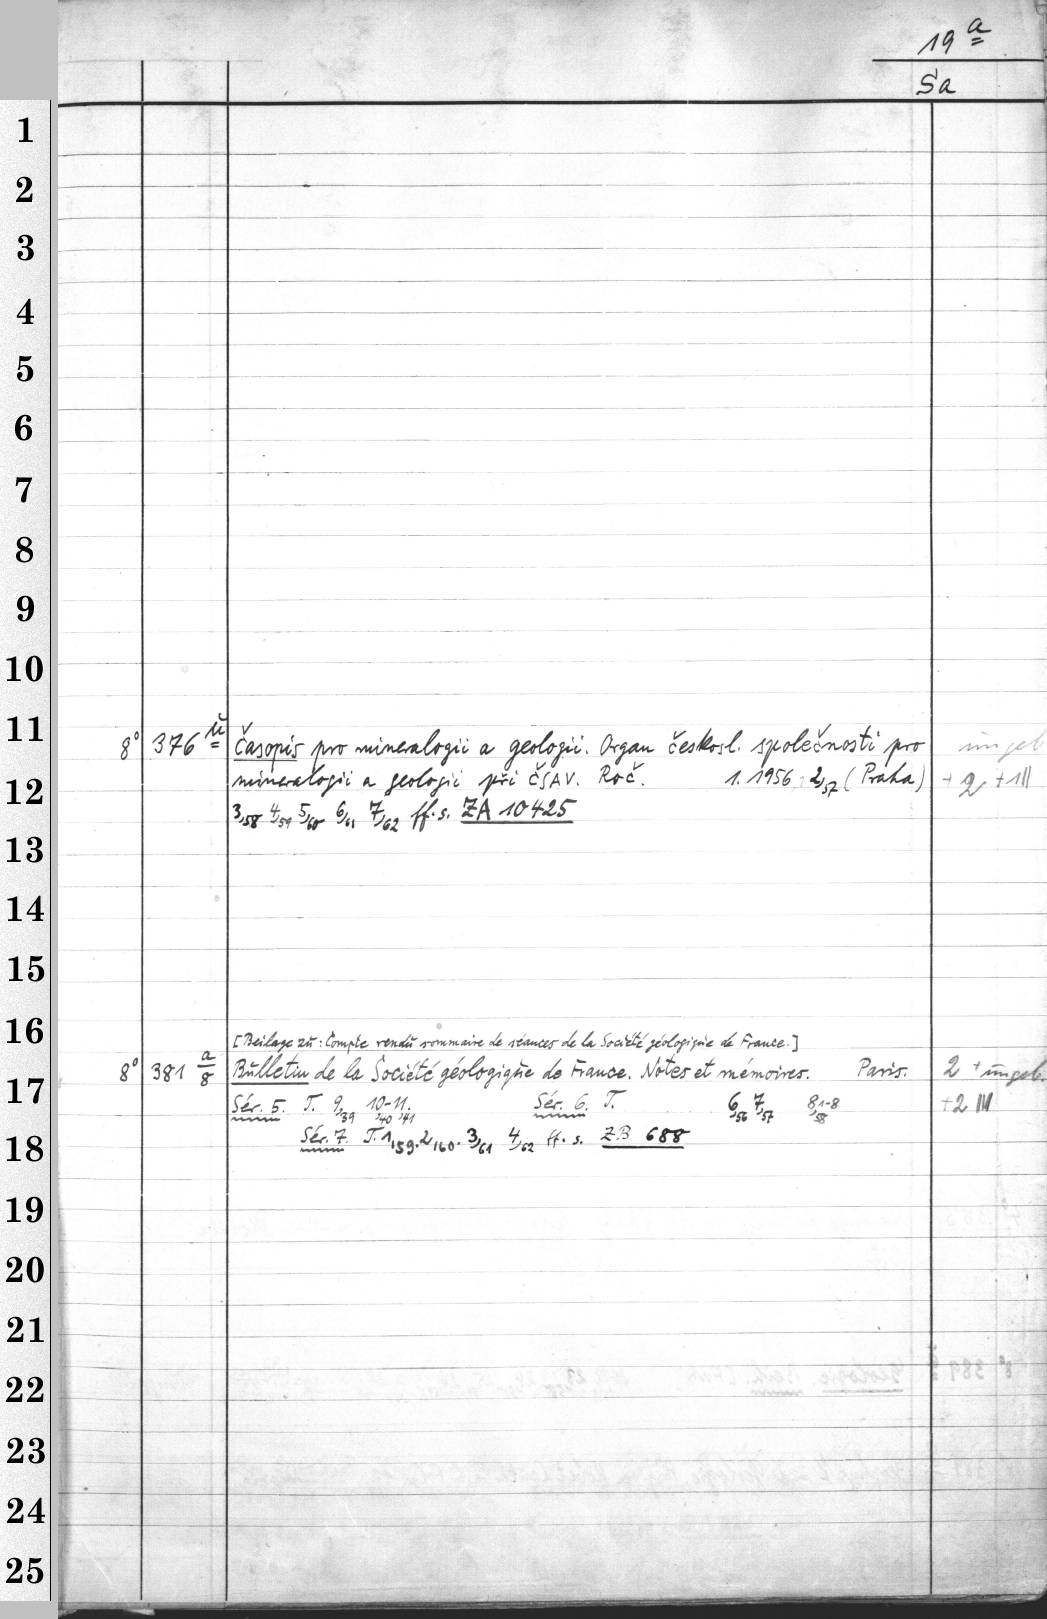 19 a
Sa
1
2
3
4
5
6
7
8
9
10
11
8° 376 ü Časopis pro mineralogii a geologii. Organ českosl. společnosti pro ungeb
12
mineralogii a geologii při ČSAV. Roč. 1. 1956, 2,57 (Praha) + 2 + III
3,58 4,59 5,60 6,61 7,62 ff. s. ZA 10425
13
14
15
16
[Beilage zu: Compte rendu sommaire de séances de la Société géologique de France.]
8° 381 a/8 Bulletin de la Société géologique de France. Notes et mémoires. Paris. 2 + ungeb.
17
Sér. 5. T. 9,39 10-11.,40,41 Sér. 6. T. 6,56 7,57 8,1-8,58 +2 III
18
Sér. 7. T. 1,59. 2,60. 3,61 4,62 ff. s. ZB 688
19
20
21
22
23
24
25